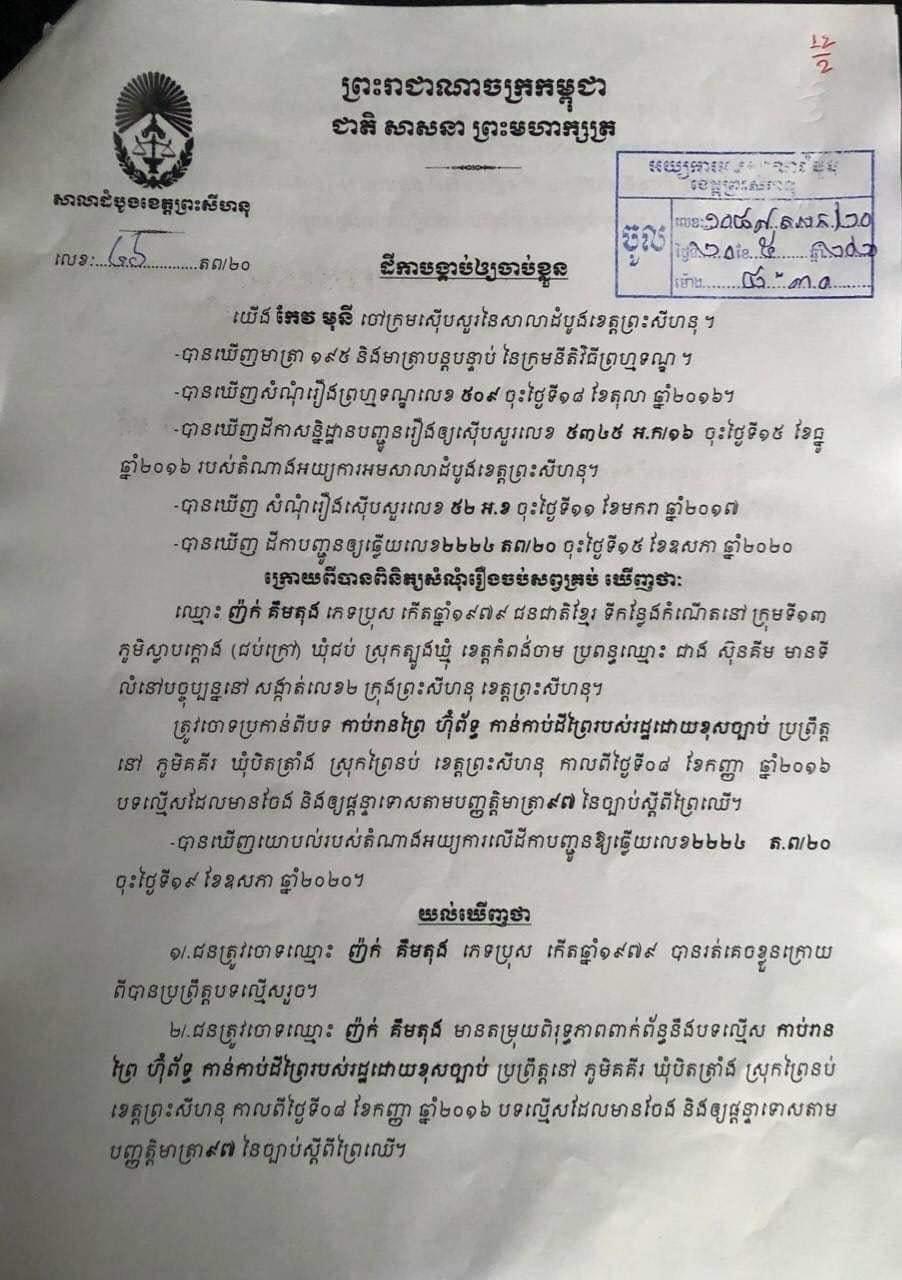 ១២
២
ព្រះរាជាណាចក្រកម្ពុជា
ជាតិ សាសនា ព្រះមហាក្សត្រ
សាលាដំបូងខេត្តព្រះសីហនុ
លេខ:..............តព/២០
ខេត្តព្រះសីហនុ
ចូល
លេខ:
ថ្ងៃ ២០ ខែ ៥
ម៉ោង ៨ ៣០
ដីកាបង្គាប់ឲ្យចាប់ខ្លួន
យើង កែវ មុនី ចៅក្រមស៊ើបសួរនៃសាលាដំបូងខេត្តព្រះសីហនុ ។
-បានឃើញមាត្រា ១៩៥ និងមាត្រាបន្តបន្ទាប់ នៃក្រមនីតិវិធីព្រហ្មទណ្ឌ ។
-បានឃើញសំណុំរឿងព្រហ្មទណ្ឌលេខ ៥០៩ ចុះថ្ងៃទី១៨ ខែតុលា ឆ្នាំ២០១៦។
-បានឃើញដីកាសន្និដ្ឋានបញ្ជូនរឿងឲ្យស៊ើបសួរលេខ ៥៣៤៥ អ.ក/១៦ ចុះថ្ងៃទី១៥ ខែធ្នូ
ឆ្នាំ២០១៦ របស់តំណាងអយ្យការអមសាលាដំបូងខេត្តព្រះសីហនុ។
-បានឃើញ សំណុំរឿងស៊ើបសួរលេខ ៥២ អ.ខ ចុះថ្ងៃទី១១ ខែមករា ឆ្នាំ២០១៧
-បានឃើញ ដីកាបញ្ជូនឲ្យឆ្លើយលេខ២២២៤ តព/២០ ចុះថ្ងៃទី១៥ ខែឧសភា ឆ្នាំ២០២០
ក្រោយពីបានពិនិត្យសំណុំរឿងចប់សព្វគ្រប់ ឃើញថា:
ឈ្មោះ ញ៉ក់ គឹមតុង ភេទប្រុស កើតឆ្នាំ១៩៧៩ ជនជាតិខ្មែរ ទីកន្លែងកំណើតនៅ ក្រុមទី១៣
ភូមិស្លាបក្ដោង (ជប់ក្រៅ) ឃុំជប់ ស្រុកត្បូងឃ្មុំ ខេត្តកំពង់ចាម ប្រពន្ធឈ្មោះ ជាង ស៊ុនគីម មានទី
លំនៅបច្ចុប្បន្ននៅ សង្កាត់លេខ២ ក្រុងព្រះសីហនុ ខេត្តព្រះសីហនុ។
ត្រូវចោទប្រកាន់ពីបទ កាប់រានព្រៃ ហ៊ុំព័ទ្ធ កាន់កាប់ដីព្រៃរបស់រដ្ឋដោយខុសច្បាប់ ប្រព្រឹត្ត
នៅ ភូមិគគីរ ឃុំបិតត្រាំង ស្រុកព្រៃនប់ ខេត្តព្រះសីហនុ កាលពីថ្ងៃទី០៨ ខែកញ្ញា ឆ្នាំ២០១៦
បទល្មើសដែលមានចែង និងឲ្យផ្តន្ទាទោសតាមបញ្ញត្តិមាត្រា៩៧ នៃច្បាប់ស្តីពីព្រៃឈើ។
-បានឃើញយោបល់របស់តំណាងអយ្យការលើដីកាបញ្ជូនឱ្យឆ្លើយលេខ២២២៤ ត.ព/២០
ចុះថ្ងៃទី១៩ ខែឧសភា ឆ្នាំ២០២០។
យល់ឃើញថា
១/.ជនត្រូវចោទឈ្មោះ ញ៉ក់ គឹមតុង ភេទប្រុស កើតឆ្នាំ១៩៧៩ បានរត់គេចខ្លួនក្រោយ
ពីបានប្រព្រឹត្តបទល្មើសរួច។
២/.ជនត្រូវចោទឈ្មោះ ញ៉ក់ គឹមតុង មានតម្រុយពិរុទ្ធភាពពាក់ព័ន្ធនឹងបទល្មើស កាប់រាន
ព្រៃ ហ៊ុំព័ទ្ធ កាន់កាប់ដីព្រៃរបស់រដ្ឋដោយខុសច្បាប់ ប្រព្រឹត្តនៅ ភូមិគគីរ ឃុំបិតត្រាំង ស្រុកព្រៃនប់
ខេត្តព្រះសីហនុ កាលពីថ្ងៃទី០៨ ខែកញ្ញា ឆ្នាំ២០១៦ បទល្មើសដែលមានចែង និងឲ្យផ្តន្ទាទោសតាម
បញ្ញត្តិមាត្រា៩៧ នៃច្បាប់ស្តីពីព្រៃឈើ។